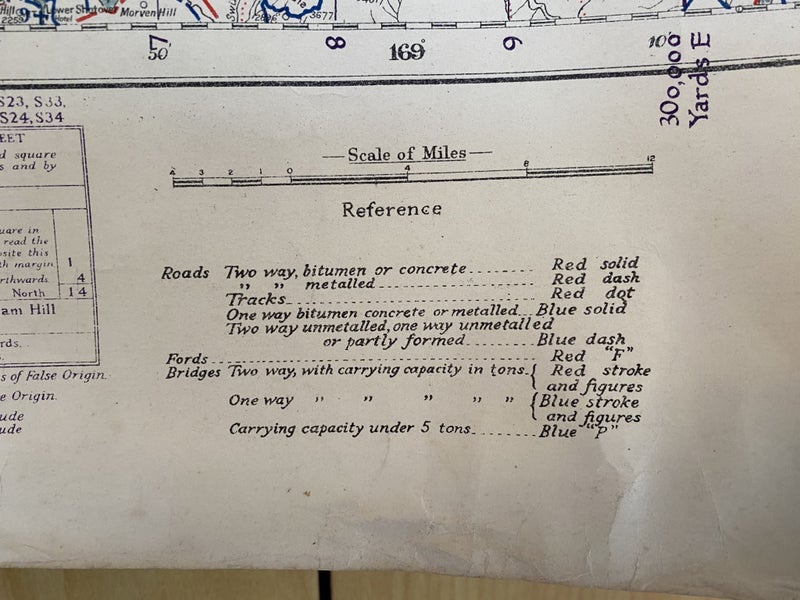 Lower Shotover
Hotel
Morven Hill
3677
7
50'
8
169°
9
10'
300,000
Yards E
S23, S33,
S24, S34
EET
d square
s and by
uare in
read the
osite this
th margin 1
rthwards 4
North 14
am Hill
rds.
s of False Origin.
e Origin.
ude
ude
Scale of Miles
4 3 2 1 0 4 8 12
Reference
Roads Two way, bitumen or concrete........ Red solid
" " metalled........ Red dash
Tracks........ Red dot
One way bitumen concrete or metalled... Blue solid
Two way unmetalled, one way unmetalled
or partly formed........ Blue dash
Fords........ Red "F"
Bridges Two way, with carrying capacity in tons. { Red stroke
and figures
One way " " " " " { Blue stroke
and figures
Carrying capacity under 5 tons........ Blue "P"